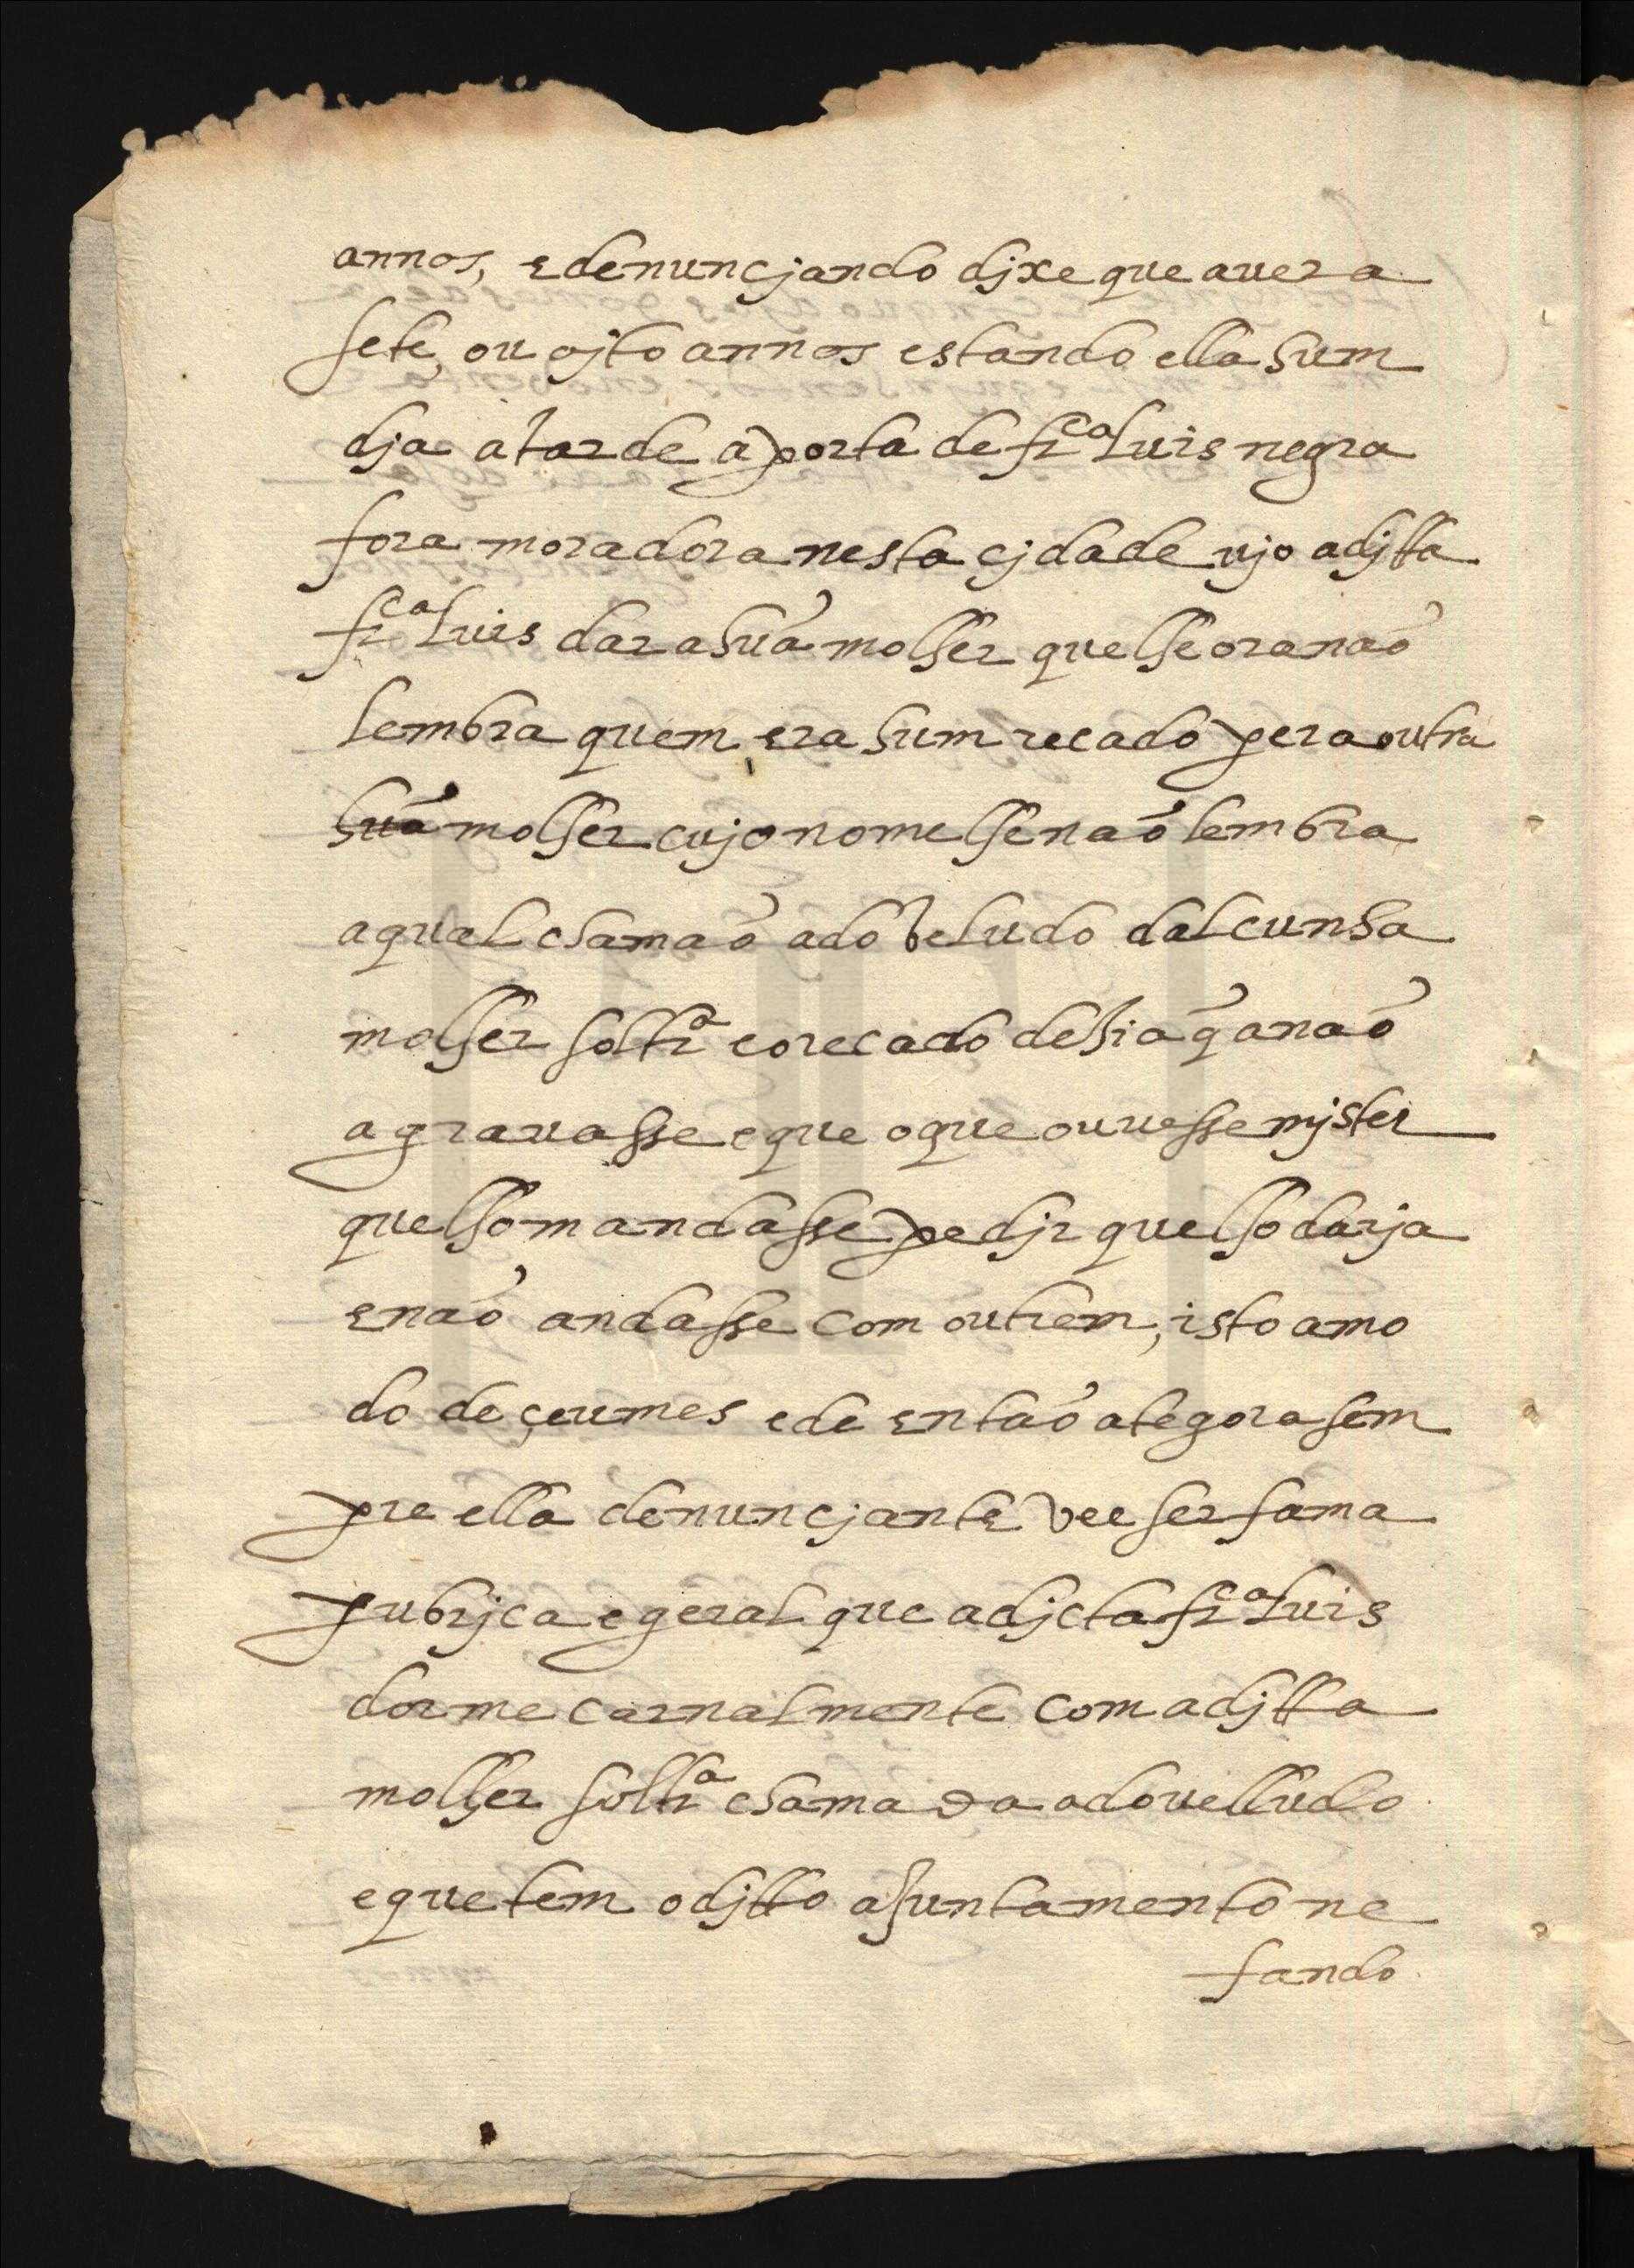 annos, e denuncjando djxe que auera
sete, ou ojto annos estando ella hum
dja a tarde a porta de fr.ca luis negra
forra moradora nesta cjdade vjo a djtta
fr.ca luis dar a hũa molher que lhe ora não
lembra quem era hum recado pera outra
hũa molher cujo nome lhe não lembra
a qual chamão a do veludo dalcunha
molher soltr.a e o recado dezia q̃ a não
agrauasse e que o que ouuesse mjster
que lho mandasse pedjr que lho darja
e não andasse com outrem, isto a mo
do de çeumes e de então ategora sem
pre ella denuncjante vee ser fama
pubrjca e geral que a djcta fr.ca luis
dorme carnalmente com a djtta
molher soltr.a chamada a do uelludo
e que tem o djtto ajuntamento ne
fando